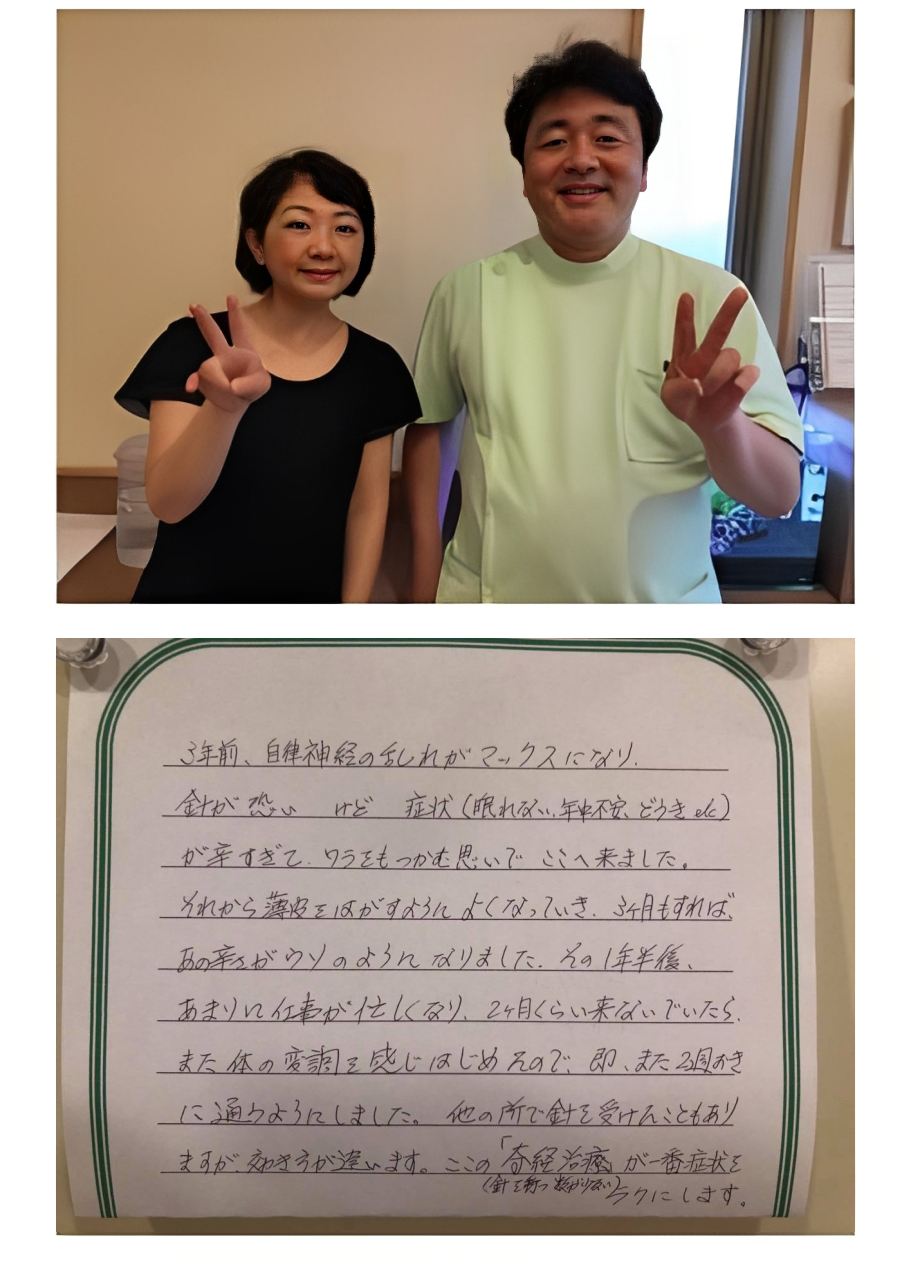 3年前、自律神経の乱れがマックスになり、
針が恐い けど 症状(眠れない、年中不安、どうき etc)
が辛すぎて、ワラをもつかむ思いで ここへ来ました。
それから薄皮をはがすように よくなっていき、3ヶ月もすれば、
あの辛さがウソのように なりました。その1年半後、
あまりに仕事が忙しくなり、2ヶ月くらい来ないでいたら、
また体の変調を感じはじめたので、即、また2週おき
に通うようにしました。他の所で針を受けたこともあり
ますが効き方が違います。ここの「奇経治療」が一番症状を
(針を打つ数が少ない)ラクにします。